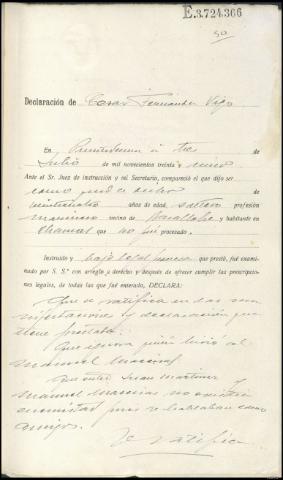 E.3.724.366
50
Declaración de Cesar Fernández Vigo
En Puentedeume a tres de
Julio de mil novecientos treinta y cinco
Ante el Sr. Juez de instrucción y mi Secretario, compareció el que dijo ser
como queda dicho de
veinticuatro años de edad, soltero profesión
marinero vecino de y habitante en
Chamoso que no fué procesado.
Instruído y bajo legal promesa que prestó, fué examinado
por S. S.ª con arreglo a derecho y después de ofrecer cumplir las prescripciones
legales, de todas las que fué enterado, DECLARA:
Que se ratifica en las manifestaciones
y declaración que
tiene prestada.
Que ignora quien hirió al
Manuel
Que entre Juan Martinez y
Manuel no existía
enemistad pues se trataban como
amigos.
Se ratifica